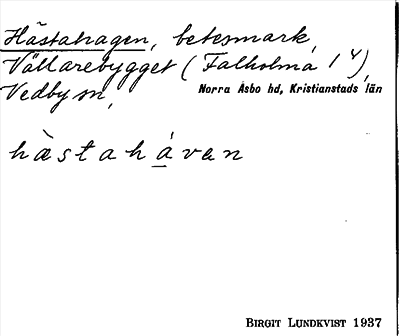 Hästahagen, betesmark,
Vällarebygget (Falholma 1 4),
Vedby sn, Norra Åsbo hd, Kristianstads län
hæ̀stahávan
BIRGIT LUNDKVIST 1937